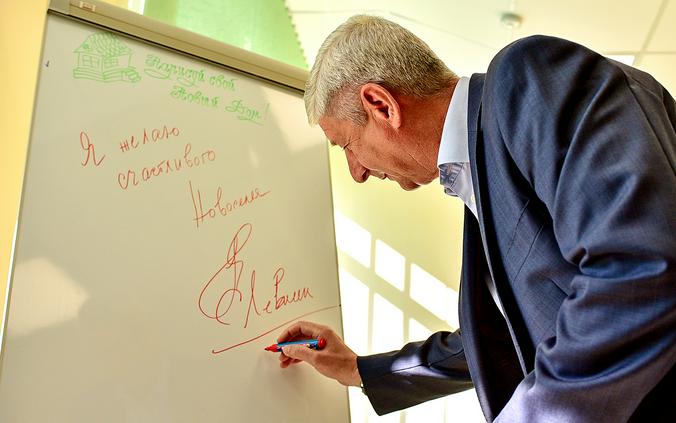 Нарисуй свой
Новый Дом!
Я желаю
счастливого
Новоселья